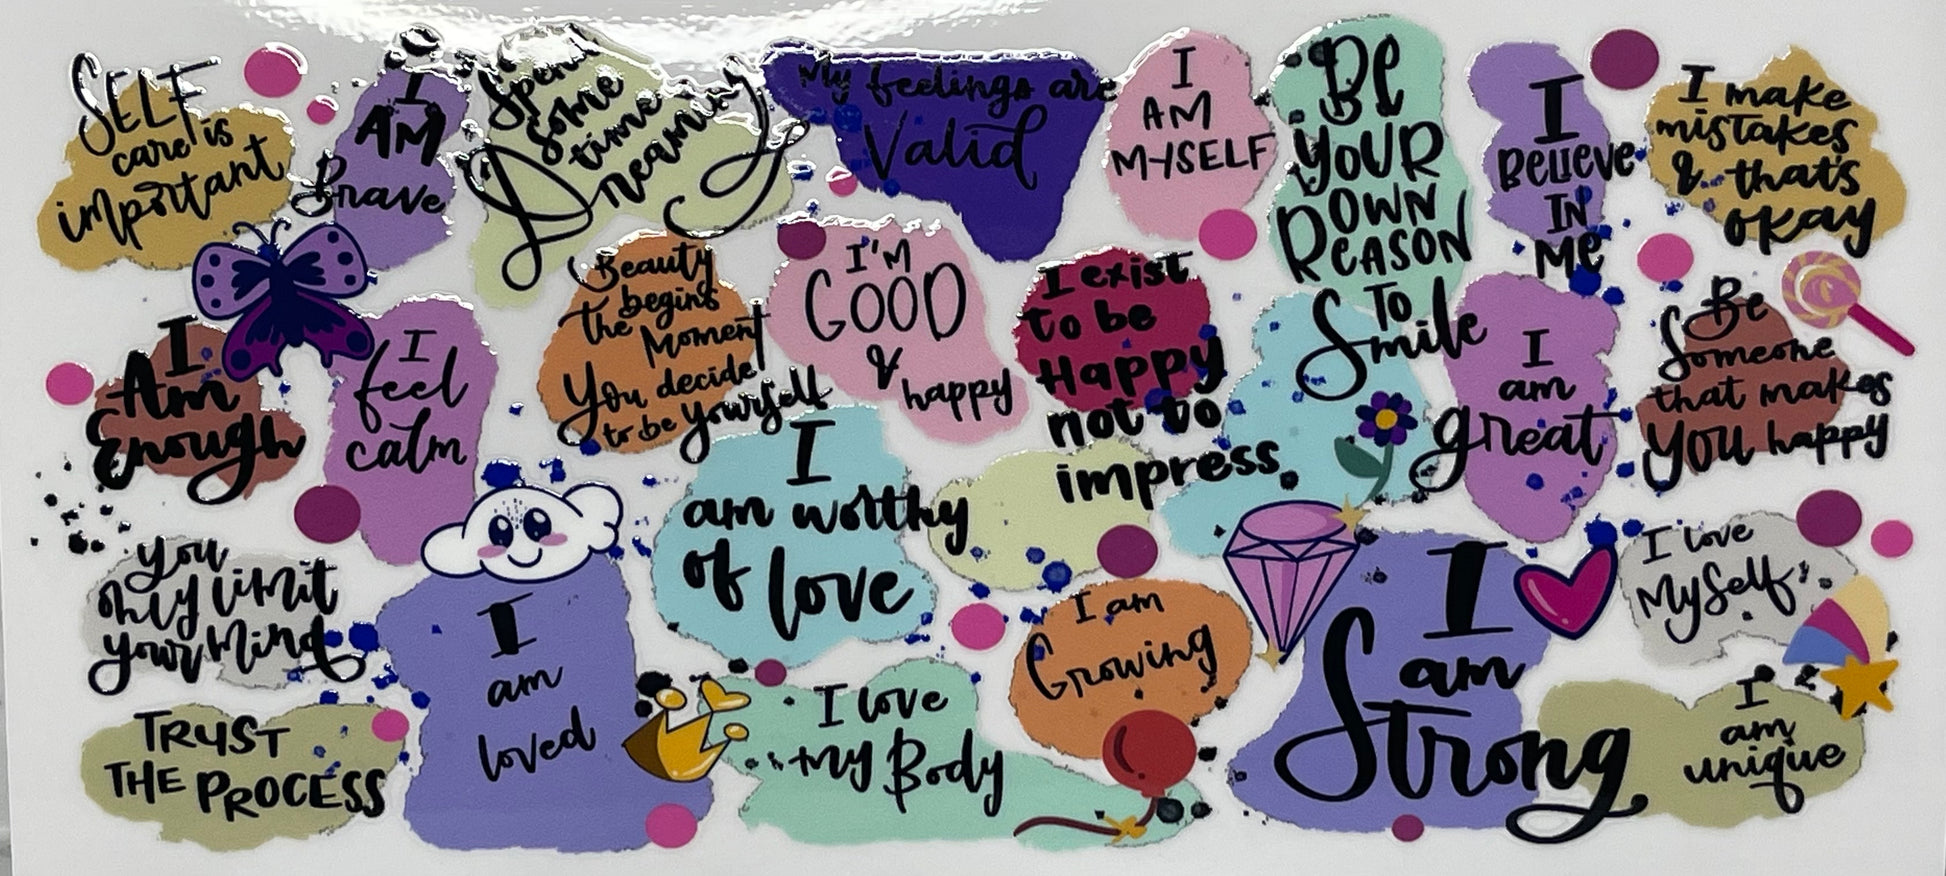 SELF
care is
important
I
AM
Brave
Spend
some
time
Dreaming
My feelings are
Valid
I
AM
MYSELF
BE
YOUR
OWN
REASON
TO
Smile
I
BELIEVE
IN
ME
I make
mistakes
& that's
okay
I
Am
Enough
I
feel
calm
Beauty
begins
the Moment
You decide
to be yourself
I'M
GOOD
&
happy
I exist
to be
Happy
not to
impress.
I
am
great
Be
Someone
that makes
you happy
You
only limit
your Mind
I
am
loved
I
am worthy
of love
I am
Growing
I
am
Strong
I love
Myself
TRUST
THE PROCESS
I love
my Body
I
am
unique